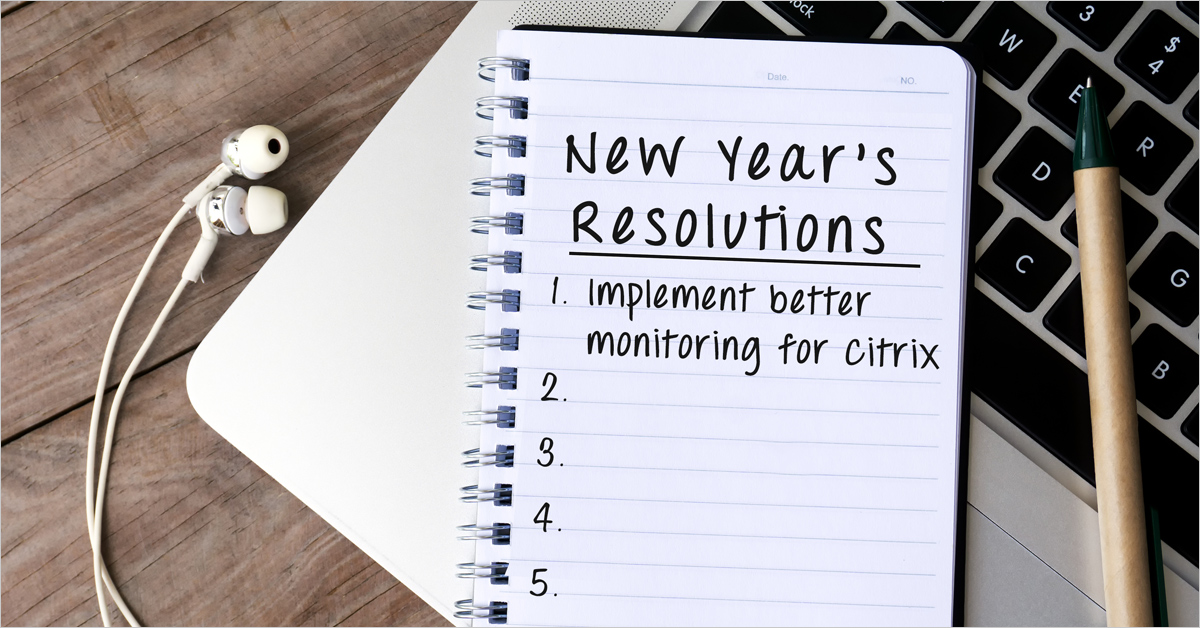 lock
3
$
4
W
E
R
D
C
G
B
Date.
NO.
New Year's
Resolutions
1. Implement better
monitoring for Citrix
2.
3.
4.
5.